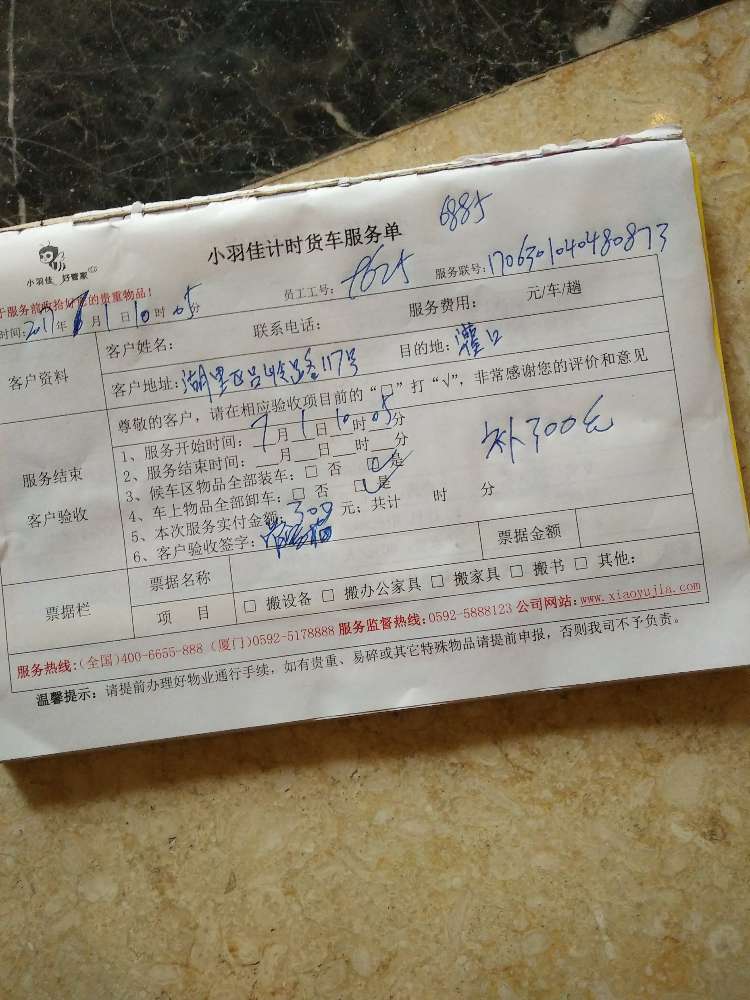 6885
小羽佳计时货车服务单
小羽佳 好管家
于服务前收拾好您的贵重物品!
员工工号: 8625 服务联号: 1706301040480873
时间: 2017年 月1日10时05分
客户资料
客户姓名: 联系电话: 服务费用: 元/车/趟
客户地址: 湖里区吕岭路117号 目的地: 灌口
服务结束
客户验收
尊敬的客户,请在相应验收项目前的“□”打“√”,非常感谢您的评价和意见
1、服务开始时间: 7月1日10时05分
2、服务结束时间: 月 日 时 分
3、候车区物品全部装车: □ 否 □ 是
4、车上物品全部卸车: □ 否 □ 是
5、本次服务实付金额: 300元; 共计 时 分
6、客户验收签字:
补300元
票据栏
票据名称 票据金额
项 目 □ 搬设备 □ 搬办公家具 □ 搬家具 □ 搬书 □ 其他:
服务热线:(全国)400-6655-888 (厦门)0592-5178888 服务监督热线:0592-5888123 公司网站:www.xiaoyujia.com
温馨提示: 请提前办理好物业通行手续,如有贵重、易碎或其它特殊物品请提前申报,否则我司不予负责。